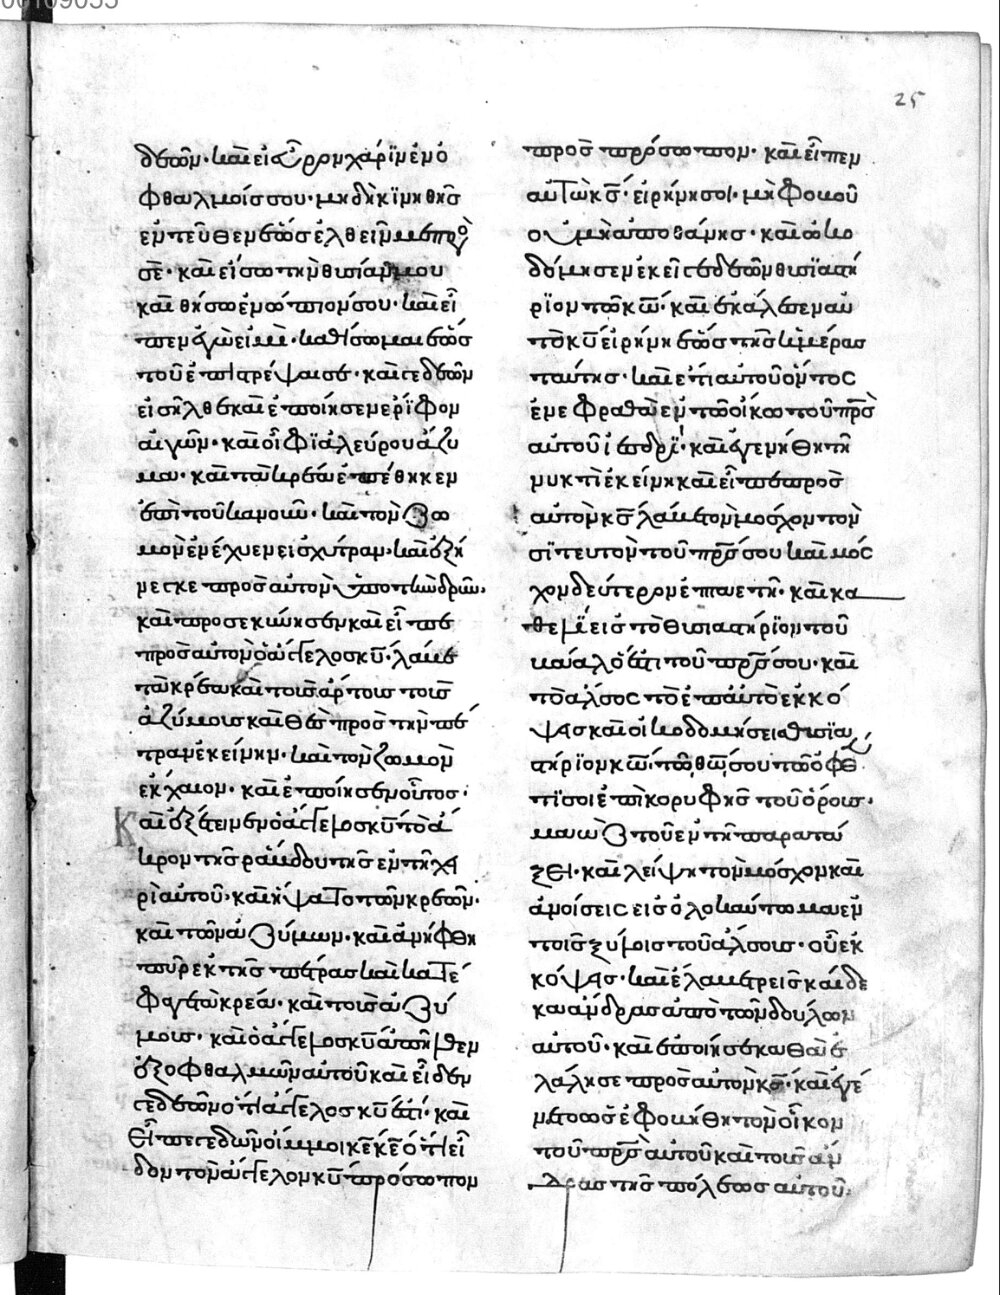 δεών· καὶ εἰ εὗρον χάριν ἐν ὀ
φθαλμοῖς σου· μὴ δὴ κινηθῆς
ἐντεῦθεν ἕως ἐλθεῖν με πρὸ
σέ· καὶ εἴσω τὴν θυσίαν μου
καὶ θήσω ἐνώπιόν σου· καὶ εἶ
πεν ἐγὼ εἰμὶ· καθίσωμαι ἕως
τοῦ ἐπιστρέψαι σε· καὶ γεδεὼν
εἰσῆλθε καὶ ἐποίησεν ἔριφον
αἰγῶν· καὶ οἰφὶ ἀλεύρου ἄζυ
μα· καὶ τὰ κρέα ἐπέθηκεν
ἐπὶ τοῦ κανοῦν· καὶ τὸν ζω
μὸν ἐνέχυεν εἰς χύτραν· καὶ ἐξή
νεγκε πρὸς αὐτὸν ὑπὸ τὴν δρῦν·
καὶ προσεκύνησεν καὶ εἶπε
πρὸς αὐτὸν ὁ ἄγγελος κ̅υ̅· λάβε
τὰ κρέα καὶ τοὺς ἄρτους τοὺς
ἀζύμους καὶ θὲς πρὸς τὴν πέ
τραν ἐκείνην· καὶ τὸν ζωμὸν
ἔκχαιον· καὶ ἐποίησεν οὕτως·
Καὶ ἐξέτεινεν ὁ ἄγγελος κ̅υ̅ τὸ ἄ
κρον τῆς ῥάβδου τῆς ἐν τῆ χει
ρὶ αὐτοῦ· καὶ ἥψατο τῶν κρεῶν·
καὶ τῶν ἀζύμων· καὶ ἀνήφθη
πῦρ ἐκ τῆς πέτρας καὶ κατέ
φαγε τὰ κρέα· καὶ τοὺς ἀζύ
μους· καὶ ὁ ἄγγελος κ̅υ̅ ἀπῆλθεν
ἐξ ὀφθαλμῶν αὐτοῦ καὶ εἶδεν
γεδεὼν ὅτι ἄγγελος κ̅υ̅ ἐστί· καὶ
εἶπε γεδεὼν οἴμμοι κ̅ε̅ κ̅ε̅ ὅτι εἶ
δον τὸν ἄγγελον κ̅υ̅ πρόσωπον
25
πρὸς πρόσωπον· καὶ εἶπεν
αὐτῶ κ̅ς̅· εἰρήνη σοι· μὴ φοβοῦ
οὐ μὴ ἀποθάνης· καὶ ὠκο
δόμησεν ἐκεῖ γεδεὼν θυσιαστή
ριον τῶ κ̅ω̅· καὶ ἐκάλεσεν αὐ
τὸ κ̅υ̅ εἰρήνη ἕως τῆς ἡμέρας
ταύτης· καὶ ἔτι αὐτοῦ ὄντος
ἐν ἐφραθὰ ἐν τῶ οἴκω τοῦ π̅ρ̅ς̅
αὐτοῦ ἐσδρὶ· καὶ ἐγενήθη τῆ
νυκτὶ ἐκείνη καὶ εἶπε πρὸς
αὐτὸν κ̅ς̅ λάβε τὸν μόσχον τὸν
σιτευτὸν τοῦ π̅ρ̅ς̅ σου καὶ μός
χον δεύτερον ἑπταετῆ· καὶ κα
θελεῖς τὸ θυσιαστήριον τοῦ
βάαλ ὅ ἐστι τοῦ π̅ρ̅ς̅ σου· καὶ
τὸ ἄλσος τὸ ἐπ' αὐτὸ ἐκκό
ψεις καὶ οἰκοδομήσεις θυσιασ
τήριον κ̅ω̅ τῶ θ̅ω̅ σου τῶ ὀφθέν
τι σοι ἐπὶ κορυφῆς τοῦ ὄρους·
μαὼζ τοῦ ἐν τῆ παρατά
ξει· καὶ λείψη τὸν μόσχον καὶ
ἀνοίσεις εἰς ὁλοκαύτωμα ἐν
τοῖς ξύλοις τοῦ ἄλσους· οὗ ἐκ
κόψεις· καὶ ἔλαβε τρεῖς καὶ δέ
κα ἄνδρας ἀπὸ τῶν δούλων
αὐτοῦ· καὶ ἐποίησε καθὰ ἐ
λάλησε πρὸς αὐτὸν κ̅ς̅· καὶ ἐγέ
νετο ὡς ἐφοβήθη τὸν οἶκον
τοῦ π̅ρ̅ς̅ αὐτοῦ καὶ τοὺς ἄν
δρας τῆς πόλεως αὐτοῦ·